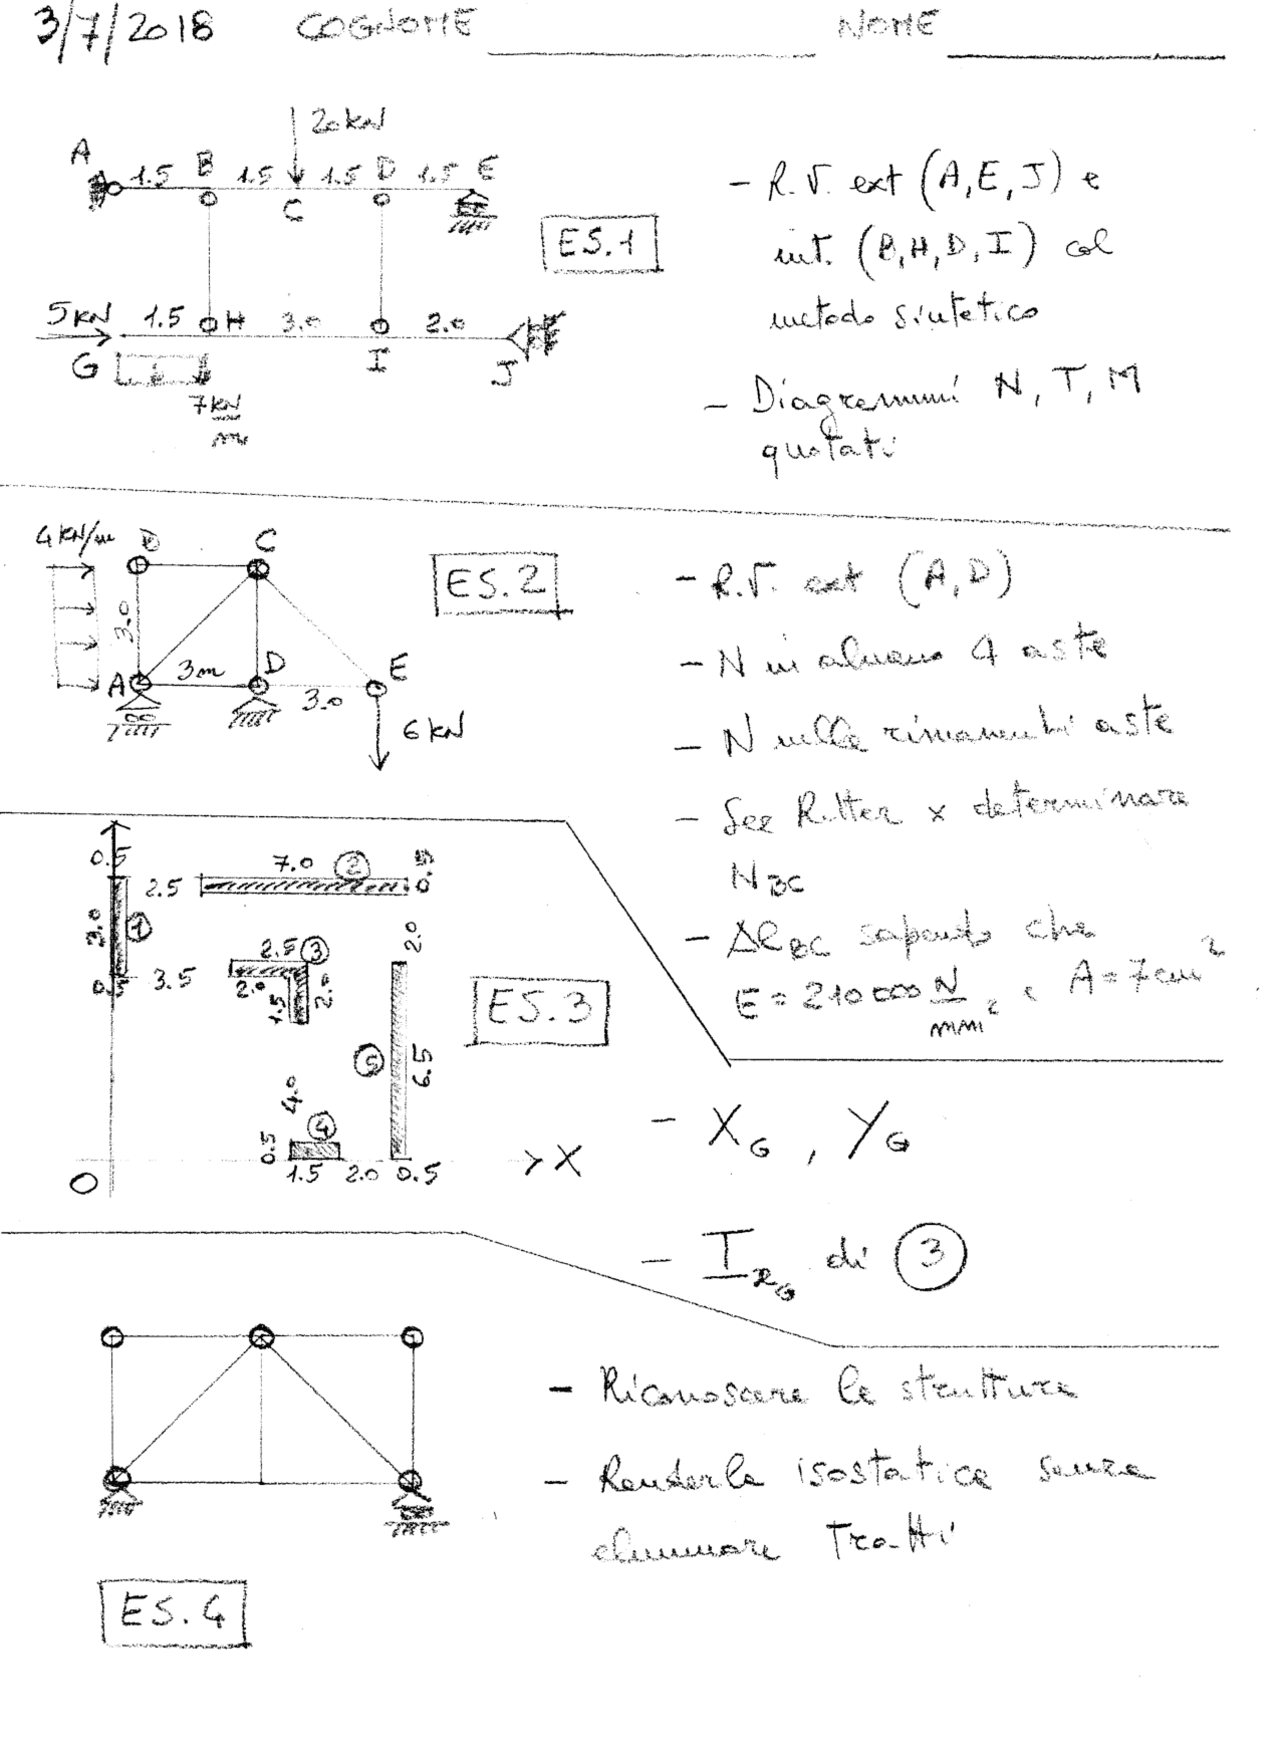 3/7/2018 COGNOME NOME
20kN
A 1.5 B 1.5 1.5 D 1.5 E
C
ES.1
- R.V. ext (A,E,J) e
int. (B,H,D,I) col
metodo sintetico
5kN 1.5 H 3.0 2.0
G I J
7 kN/m
- Diagrammi N, T, M
quotati
4 kN/m D C
3.0
3m
A D E
3.0
6 kN
ES.2
- R.V. ext (A,D)
- N in almeno 4 aste
- N nelle rimanenti aste
- Sez Ritter x determinare
NBC
- ΔlBC sapendo che
E = 210000 N/mm², A = 7cm²
0.5 7.0 2 0.5
2.5
3.0 1
2.5 3 2.0
0.5 3.5 2.0 1.5 2.0
ES.3
5 6.5
4.0
4
0.5
1.5 2.0 0.5 X
O
- XG, YG
- IxG di 3
- Riconoscere le strutture
- Renderle isostatice senza
eliminare tratti
ES.4